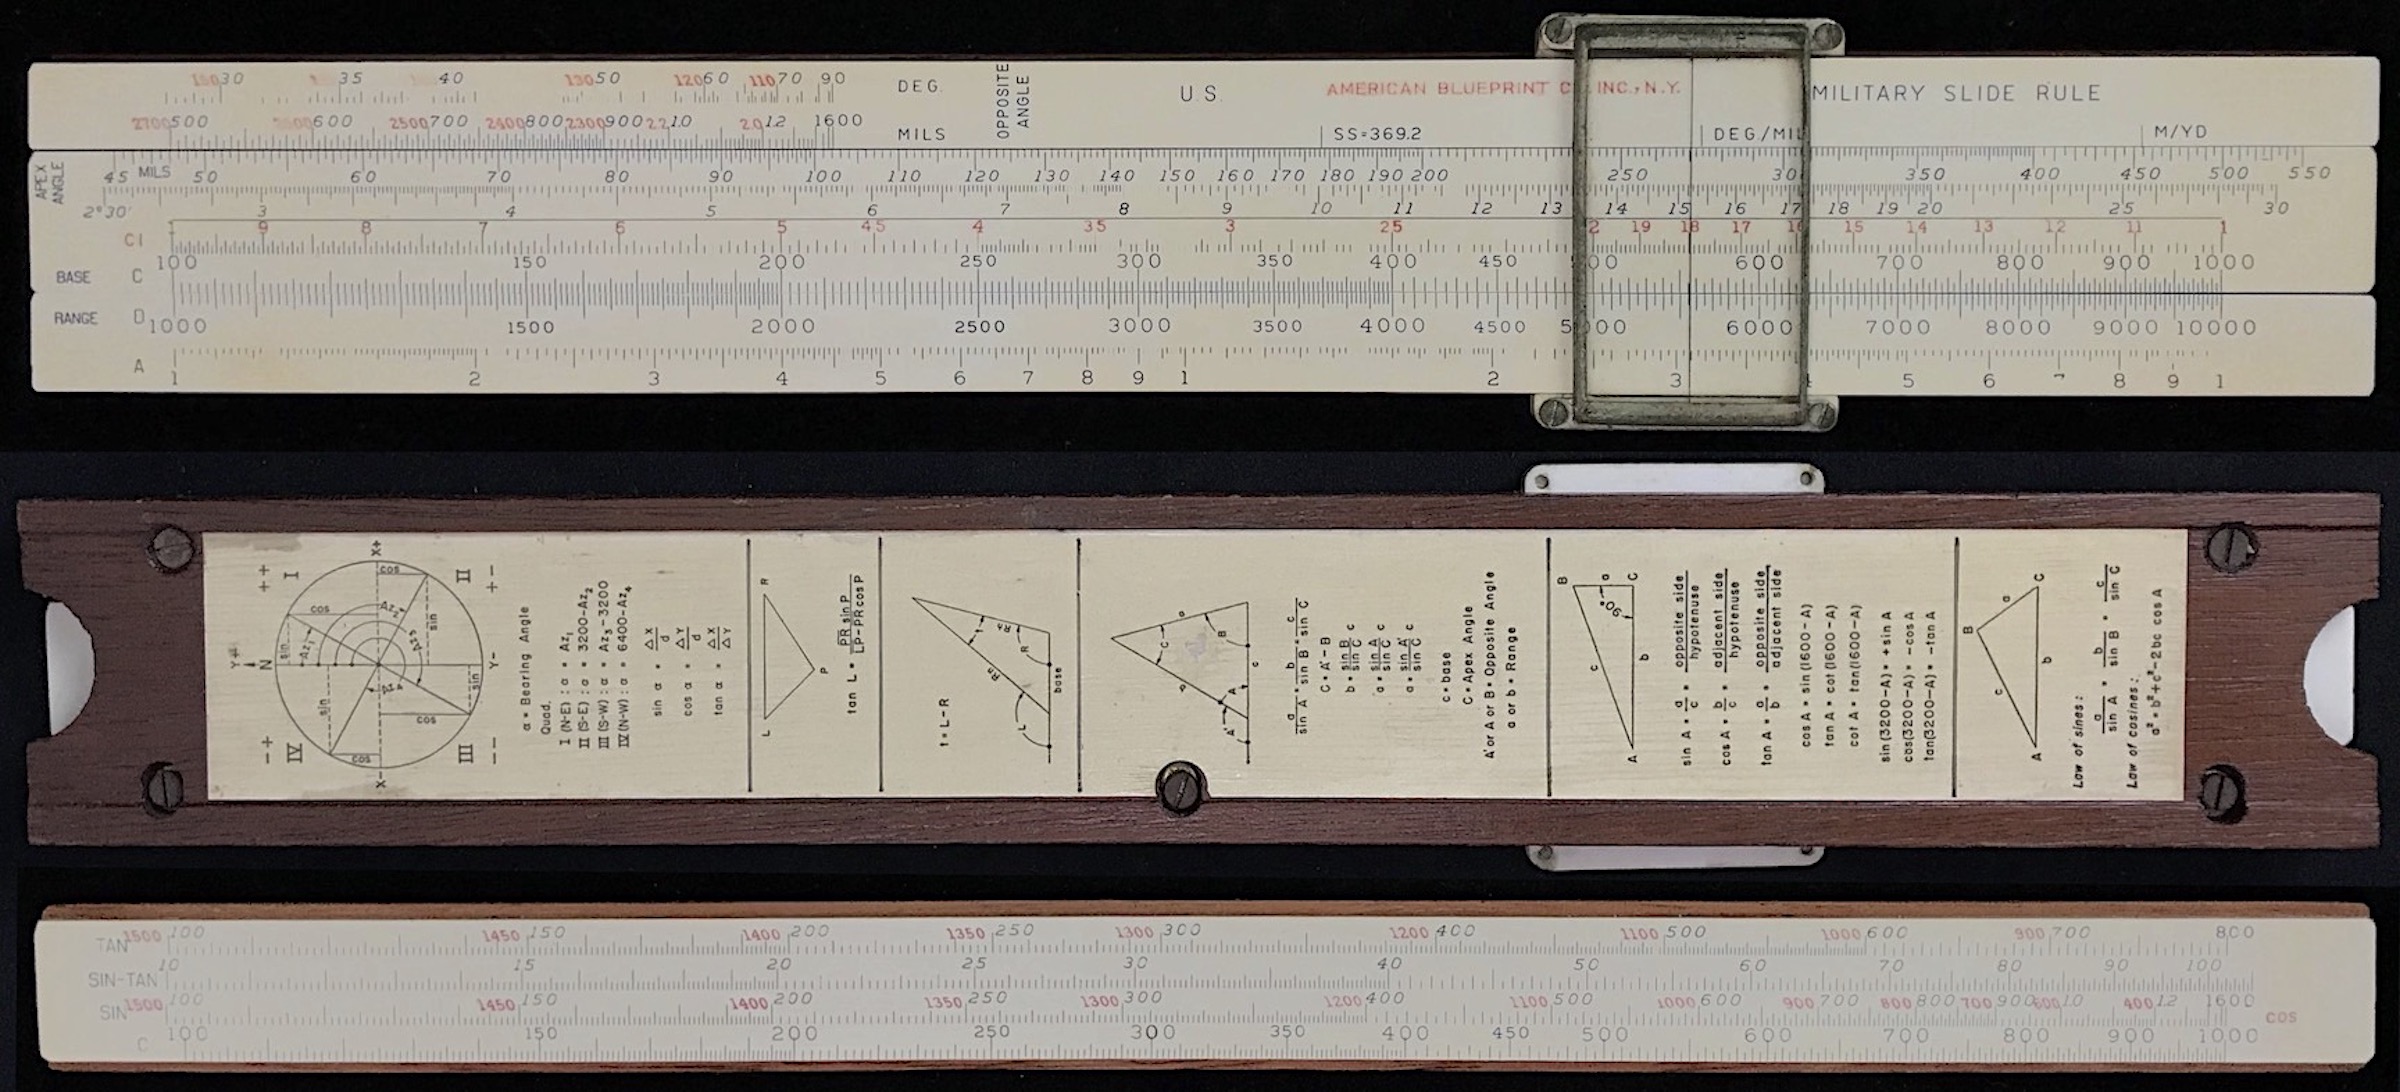 30 35 40 130 50 120 60 110 70 90 DEG. OPPOSITE ANGLE U.S. AMERICAN BLUEPRINT C INC., N.Y. MILITARY SLIDE RULE
2700 500 600 2500 700 2400 800 2300 900 10 12 1600 MILS SS=369.2 DEG/MIL M/YD
APEX ANGLE 45 MILS 50 60 70 80 90 100 110 120 130 140 150 160 170 180 190 200 250 30 350 400 450 500 550
2°30' 3 4 5 6 7 8 9 10 11 12 13 14 15 16 17 18 19 20 25 30
CI 9 8 7 6 5 45 4 35 3 25 2 19 18 17 16 15 14 13 12 11 1
BASE C 100 150 200 250 300 350 400 450 00 600 700 800 900 1000
RANGE D 1000 1500 2000 2500 3000 3500 4000 4500 5000 6000 7000 8000 9000 10000
A 1 2 3 4 5 6 7 8 9 1 2 3 4 5 6 7 8 9 1
++ I II +- -+ IV III --
X+ X- Y+ Y- N
cos cos cos cos
sin sin sin sin
Az₁ Az₂
α = Bearing Angle
Quad.
I (N-E) : α = Az₁
II (S-E) : α = 3200-Az₂
III (S-W) : α = Az₃-3200
IV (N-W) : α = 6400-Az₄
sin α = ΔX/d
cos α = ΔY/d
tan α = ΔX/ΔY
L R P
tan L = PR sin P / LP-PR cos P
L R t base
t = L-R
a C B A A' c
a/sin A = b/sin B = c/sin C
C = A'-B
b = sin B/sin C c
a = sin A/sin C c
a = sin A'/sin C c
c = base
C = Apex Angle
A' or A or B = Opposite Angle
a or b = Range
B a C 90° c b A
sin A = a/c = opposite side/hypotenuse
cos A = b/c = adjacent side/hypotenuse
tan A = a/b = opposite side/adjacent side
cos A = sin (1600-A)
tan A = cot (1600-A)
cot A = tan (1600-A)
sin (3200-A) = +sin A
cos (3200-A) = -cos A
tan (3200-A) = -tan A
B a C c b A
Law of sines:
a/sin A = b/sin B = c/sin C
Law of cosines:
a² = b²+c²-2bc cos A
TAN 1500 100 1450 150 1400 200 1350 250 1300 300 1200 400 1100 500 1000 600 900 700 800
SIN-TAN 10 15 20 25 30 40 50 60 70 80 90 100
SIN 1500 100 1450 150 1400 200 1350 250 1300 300 1200 400 1100 500 1000 600 900 700 800 800 700 900 600 10 400 12 1600 COS
C 100 150 200 250 300 350 400 450 500 600 700 800 900 1000